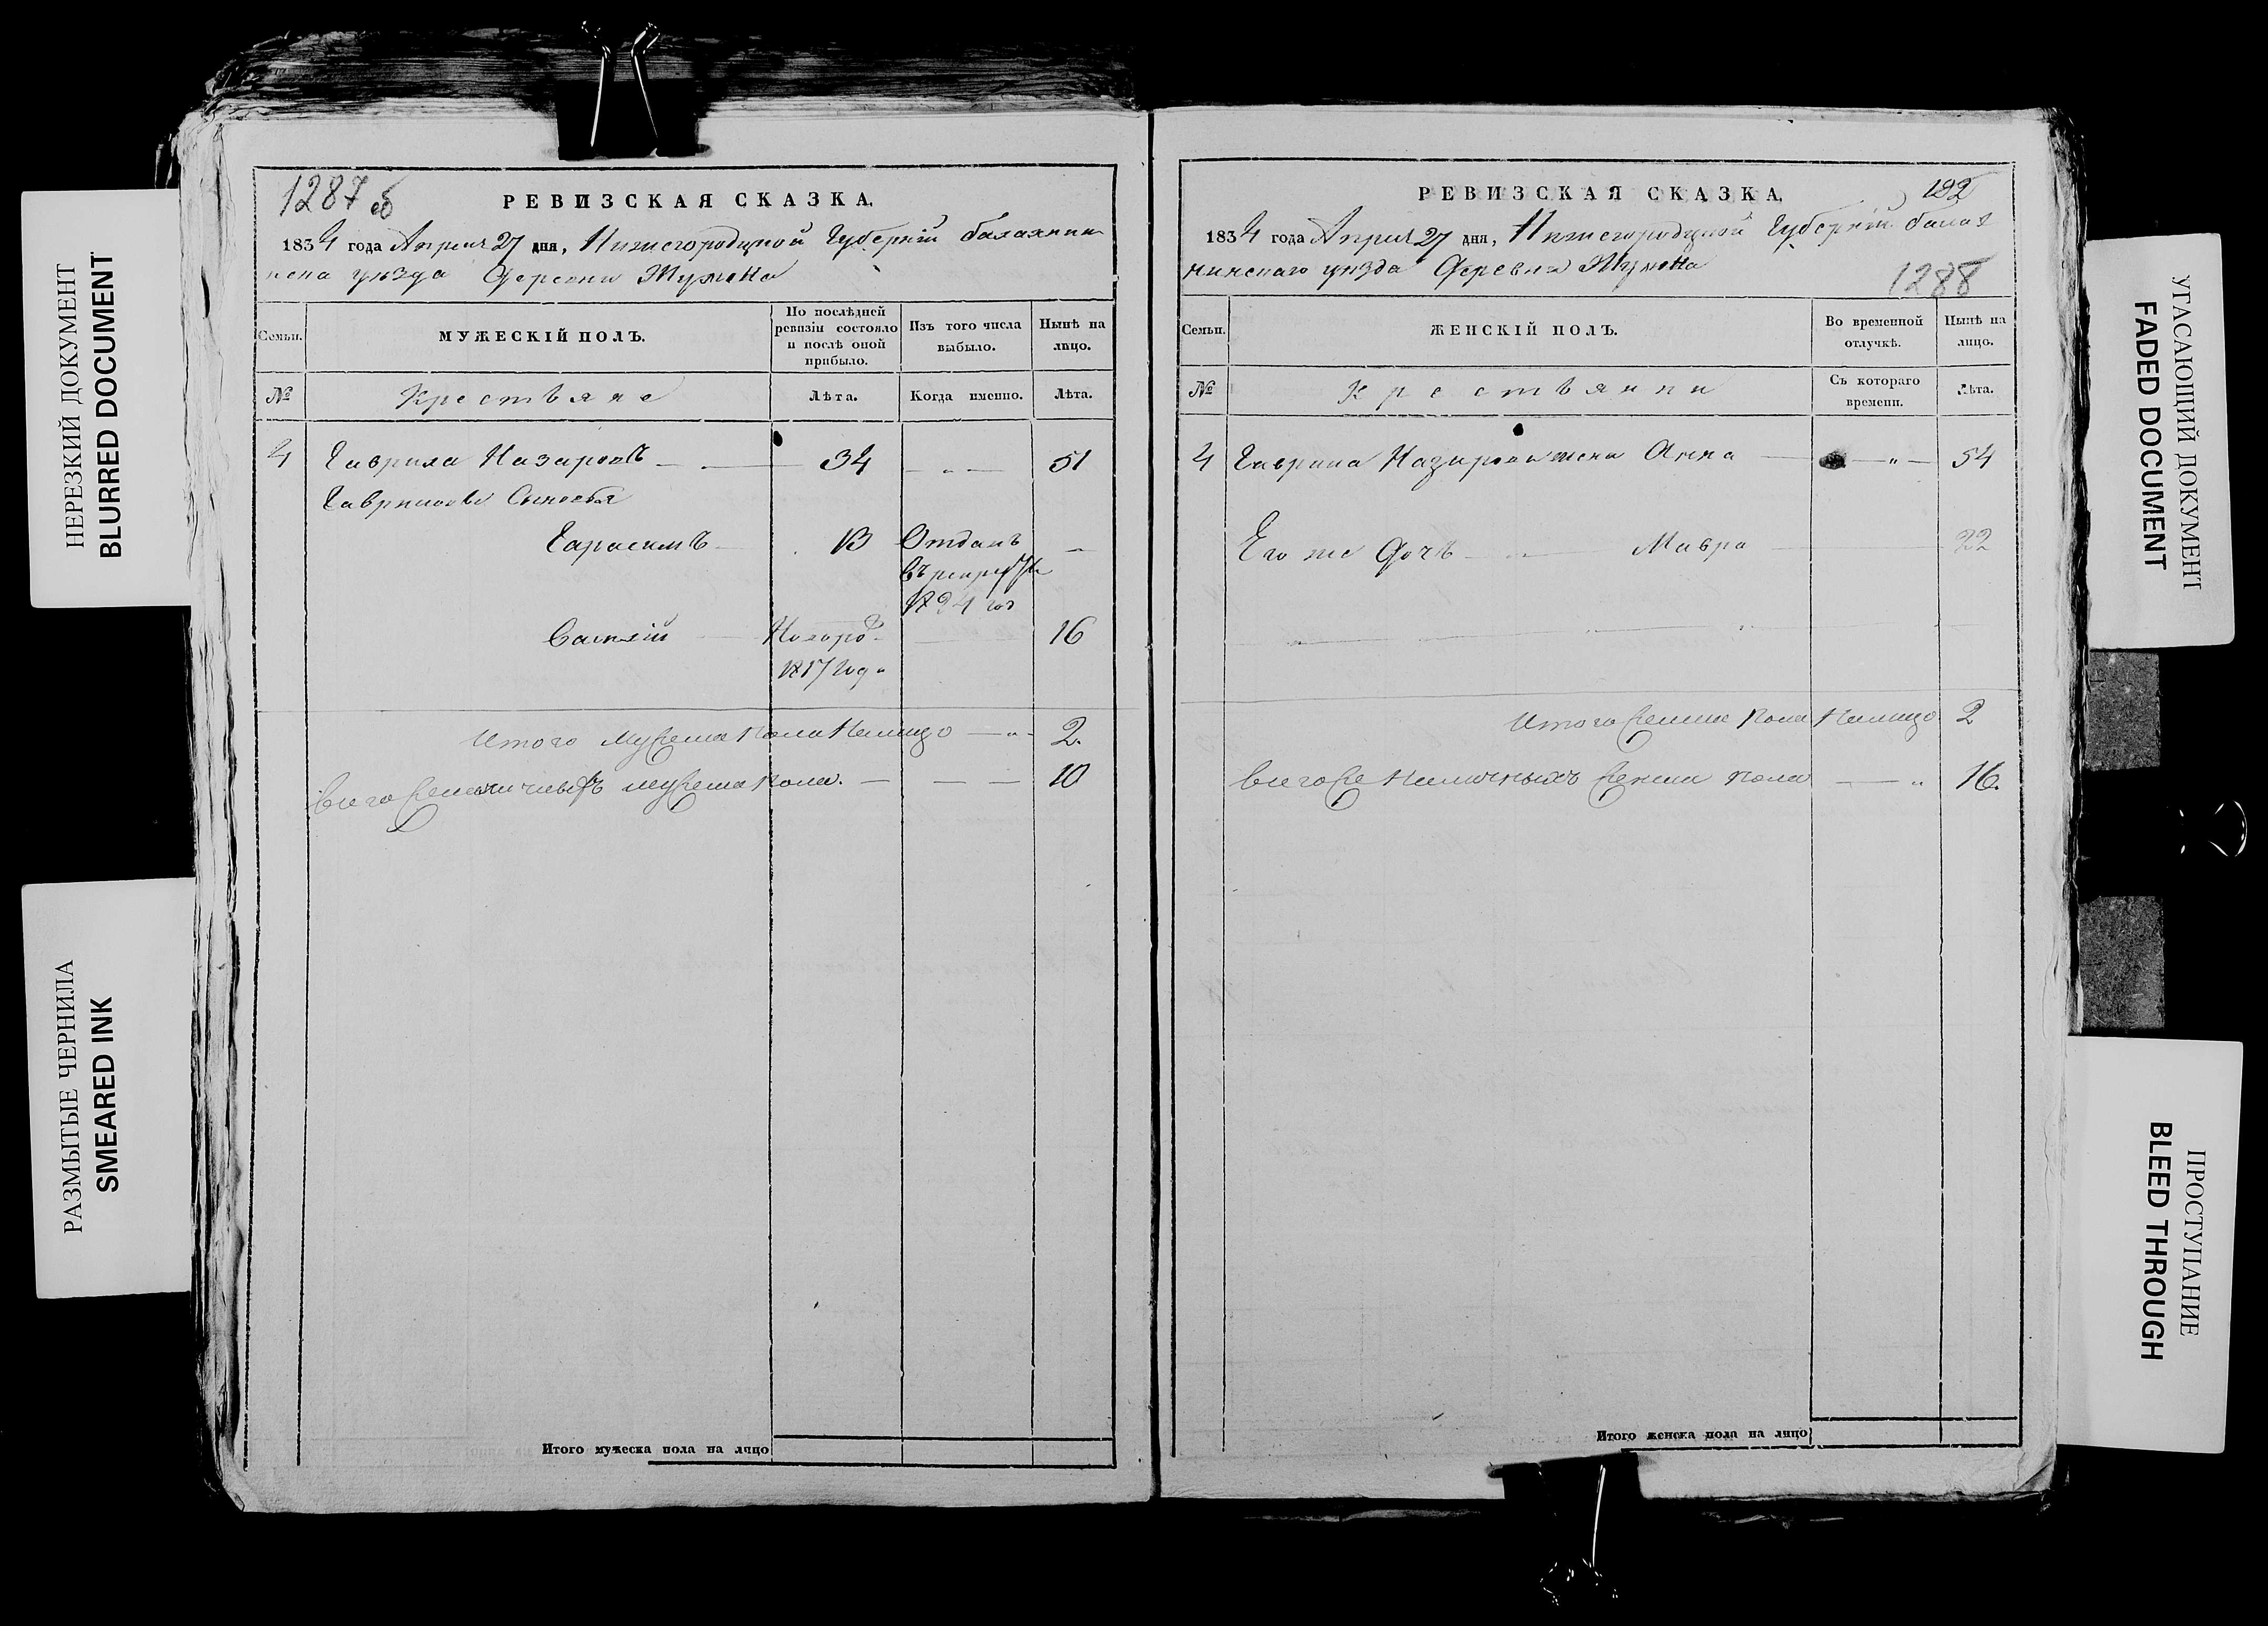 НЕРЕЗКИЙ ДОКУМЕНТ
BLURRED DOCUMENT
РАЗМЫТЫЕ ЧЕРНИЛА
SMEARED INK
1287 об
РЕВИЗСКАЯ СКАЗКА.
1834 года Апреля 27 дня, Нижегородской Губернiи балахнин
уезда Деревни
Семьи.
МУЖЕСКІЙ ПОЛЪ.
По послѣдней ревизіи состояло и послѣ оной прибыло.
Изъ того числа выбыло.
Нынѣ на лицо.
№
Крестьяне
Лѣта.
Когда именно.
Лѣта.
4 Гаврила Назаровъ 34 51
Гавриловы Сыновья
Гарасимъ 13 Отданъ
въ рекруты
1824 год
Василiй Новоро 16
1817 года
Итого мужеска пола налицо 2.
мужеска пола. 10
Итого мужеска пола на лицо
РЕВИЗСКАЯ СКАЗКА,
192
1834 года Апреля 27 дня, Нижегородской Губернiи балах
нинскаго уезда Деревня
1288
Семьи.
ЖЕНСКІЙ ПОЛЪ.
Во временной отлучкѣ.
Нынѣ на лицо.
№
Крестьянки
Съ котораго времени.
Лѣта.
4 Гаврила Назарова жена Анна 54
Его же Дочь Мавра 22
Итого женска пола налицо 2
наличныхъ женска пола 16.
Итого женска пола на лицо
УГАСАЮЩИЙ ДОКУМЕНТ
FADED DOCUMENT
ПРОСТУПАНИЕ
BLEED THROUGH